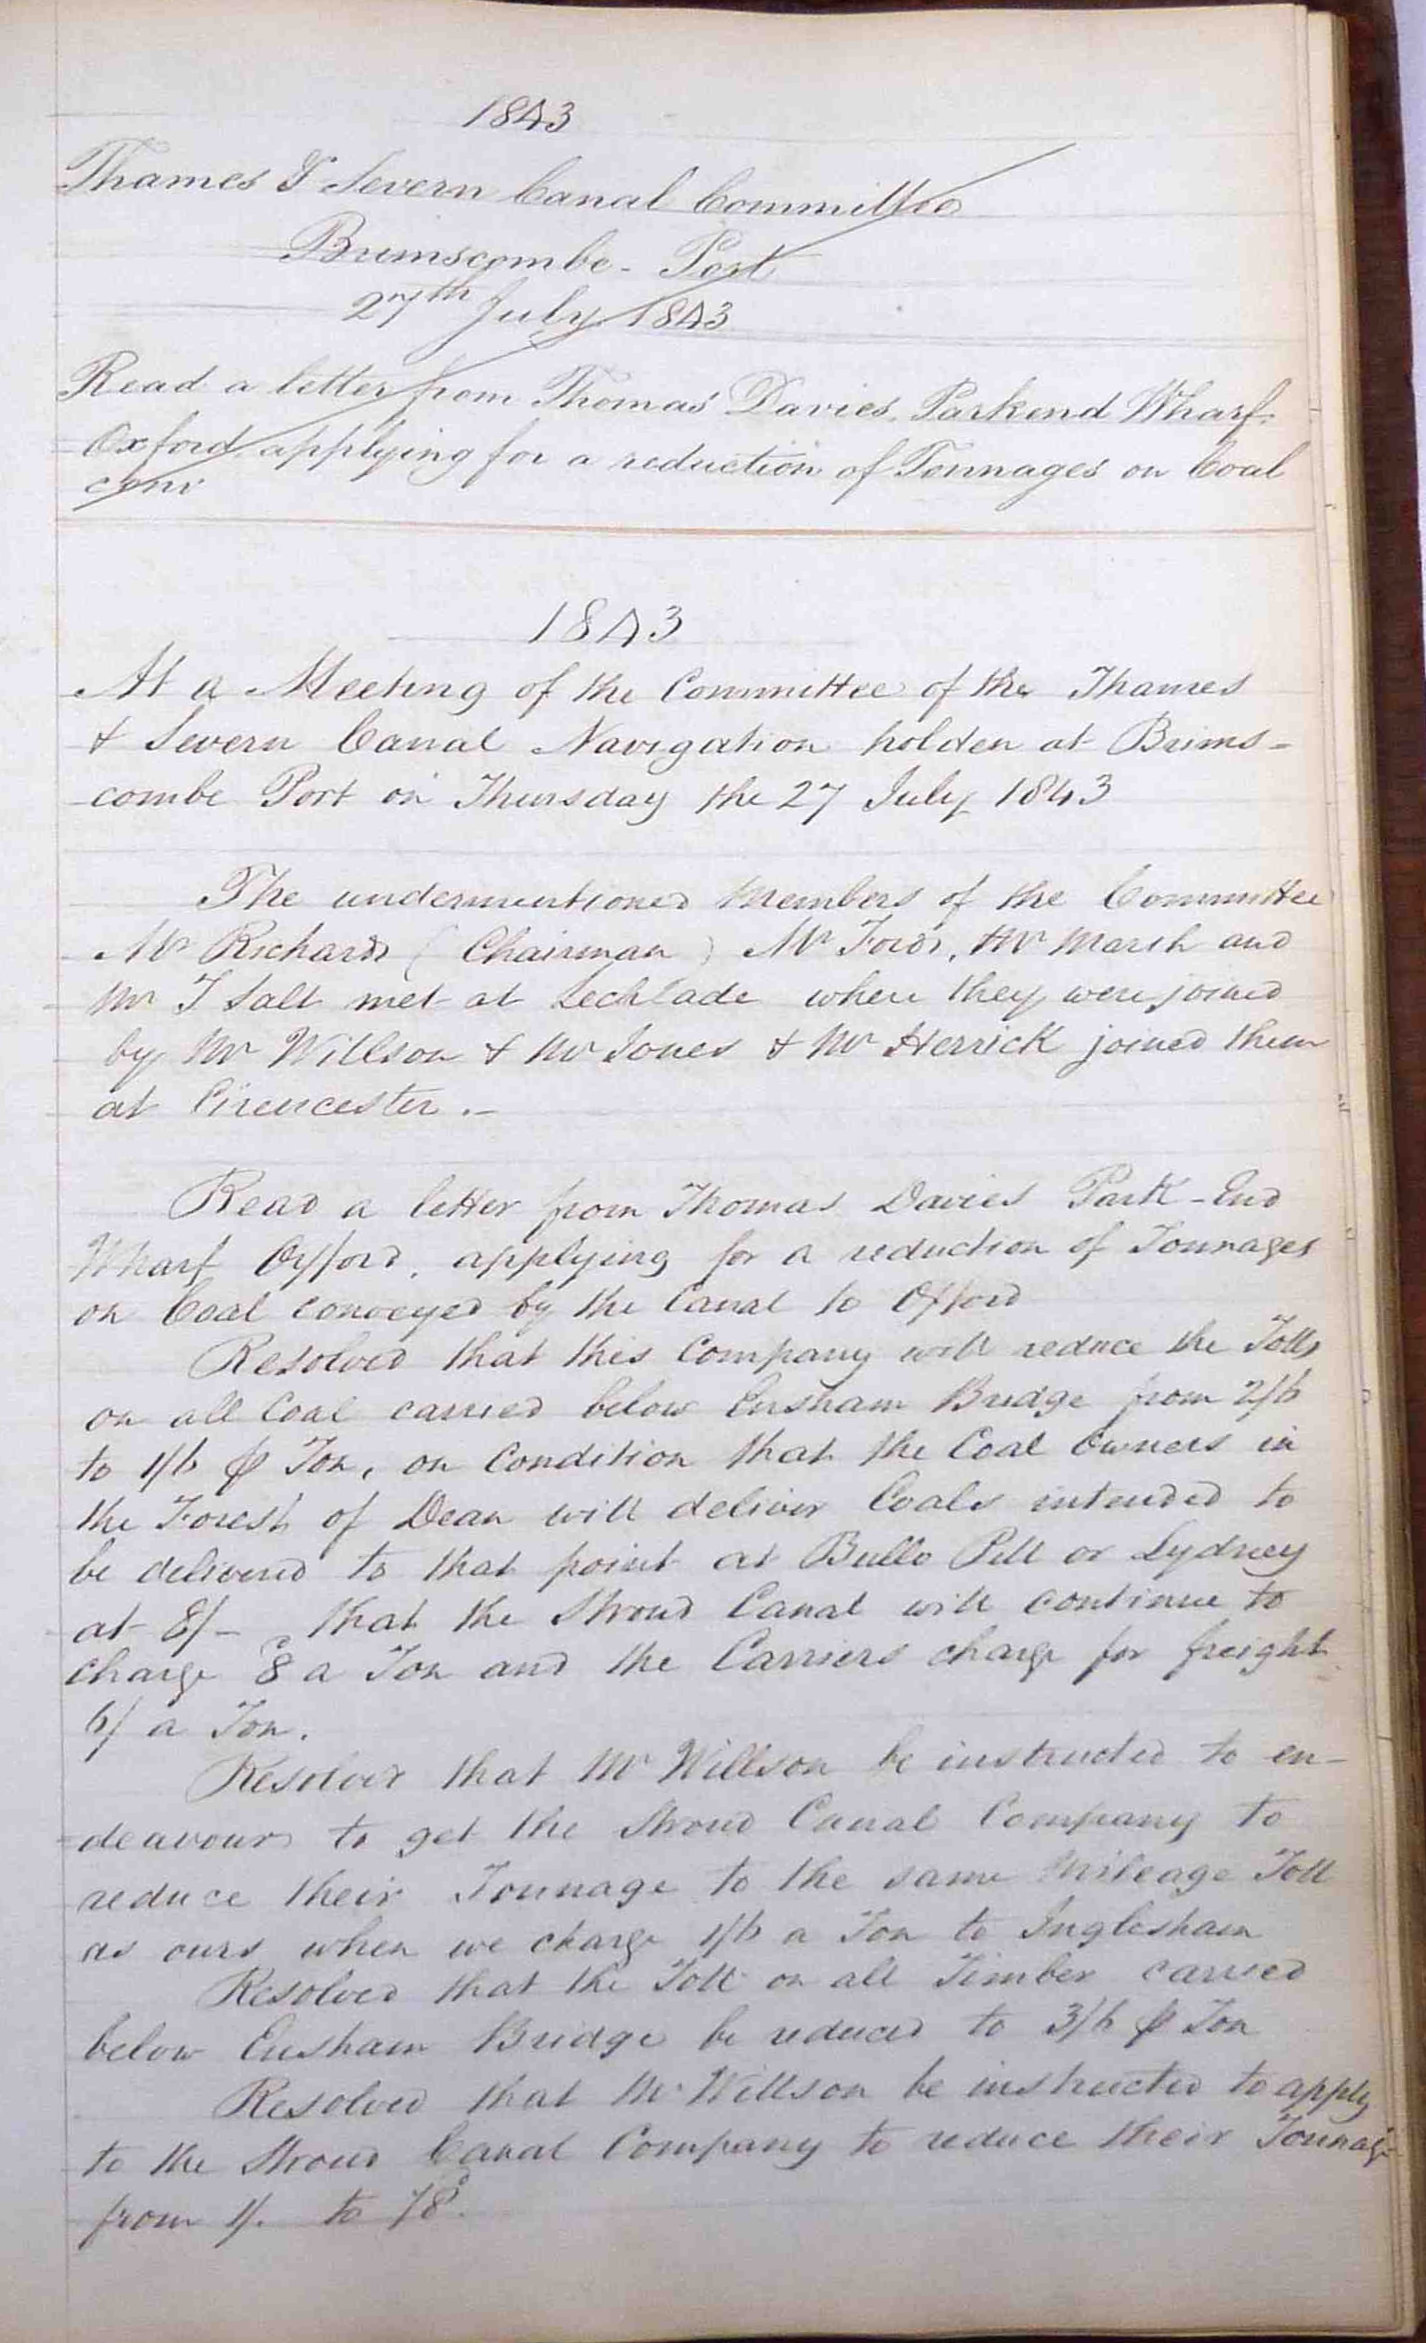 1843
Thames & Severn Canal Committee
Brimscombe - Port
27th July 1843
Read a letter from Thomas Davies, Parkend Wharf,
Oxford applying for a reduction of Tonnages on Coal
conv
1843
At a Meeting of the Committee of the Thames
& Severn Canal Navigation holden at Brims=
combe Port on Thursday the 27 July 1843
The undermentioned Members of the Committee
Mr Richards (Chairman) Mr Ford, Mr Marsh and
Mr T Salt met at Lechlade where they were joined
by Mr Willson & Mr Jones & Mr Herrick joined them
at Cirencester.-
Read a letter from Thomas Davies Park-End
Wharf Oxford, applying for a reduction of Tonnages
on Coal conveyed by the Canal to Oxford
Resolved that this Company will reduce the Tolls
on all Coal carried below Ensham Bridge from 2/6
to 1/6 ⅌ Ton, on Condition that the Coal Owners in
the Forest of Dean will deliver Coals intended to
be delivered to that point at Bullo Pill or Lydney
at 8/- that the Stroud Canal will continue to
charge 8d a Ton and the Carriers charge for freight
6/ a Ton.
Resolved that Mr Willson be instructed to en-
deavour to get the Stroud Canal Company to
reduce their Tonnage to the same Mileage Toll
as ours when we charge 1/6 a Ton to Inglesham
Resolved that the Toll on all Timber carried
below Ensham Bridge be reduced to 3/6 ⅌ Ton
Resolved that Mr Willson be instructed to apply
to the Stroud Canal Company to reduce their Tonnage
from 1/. to /8d.